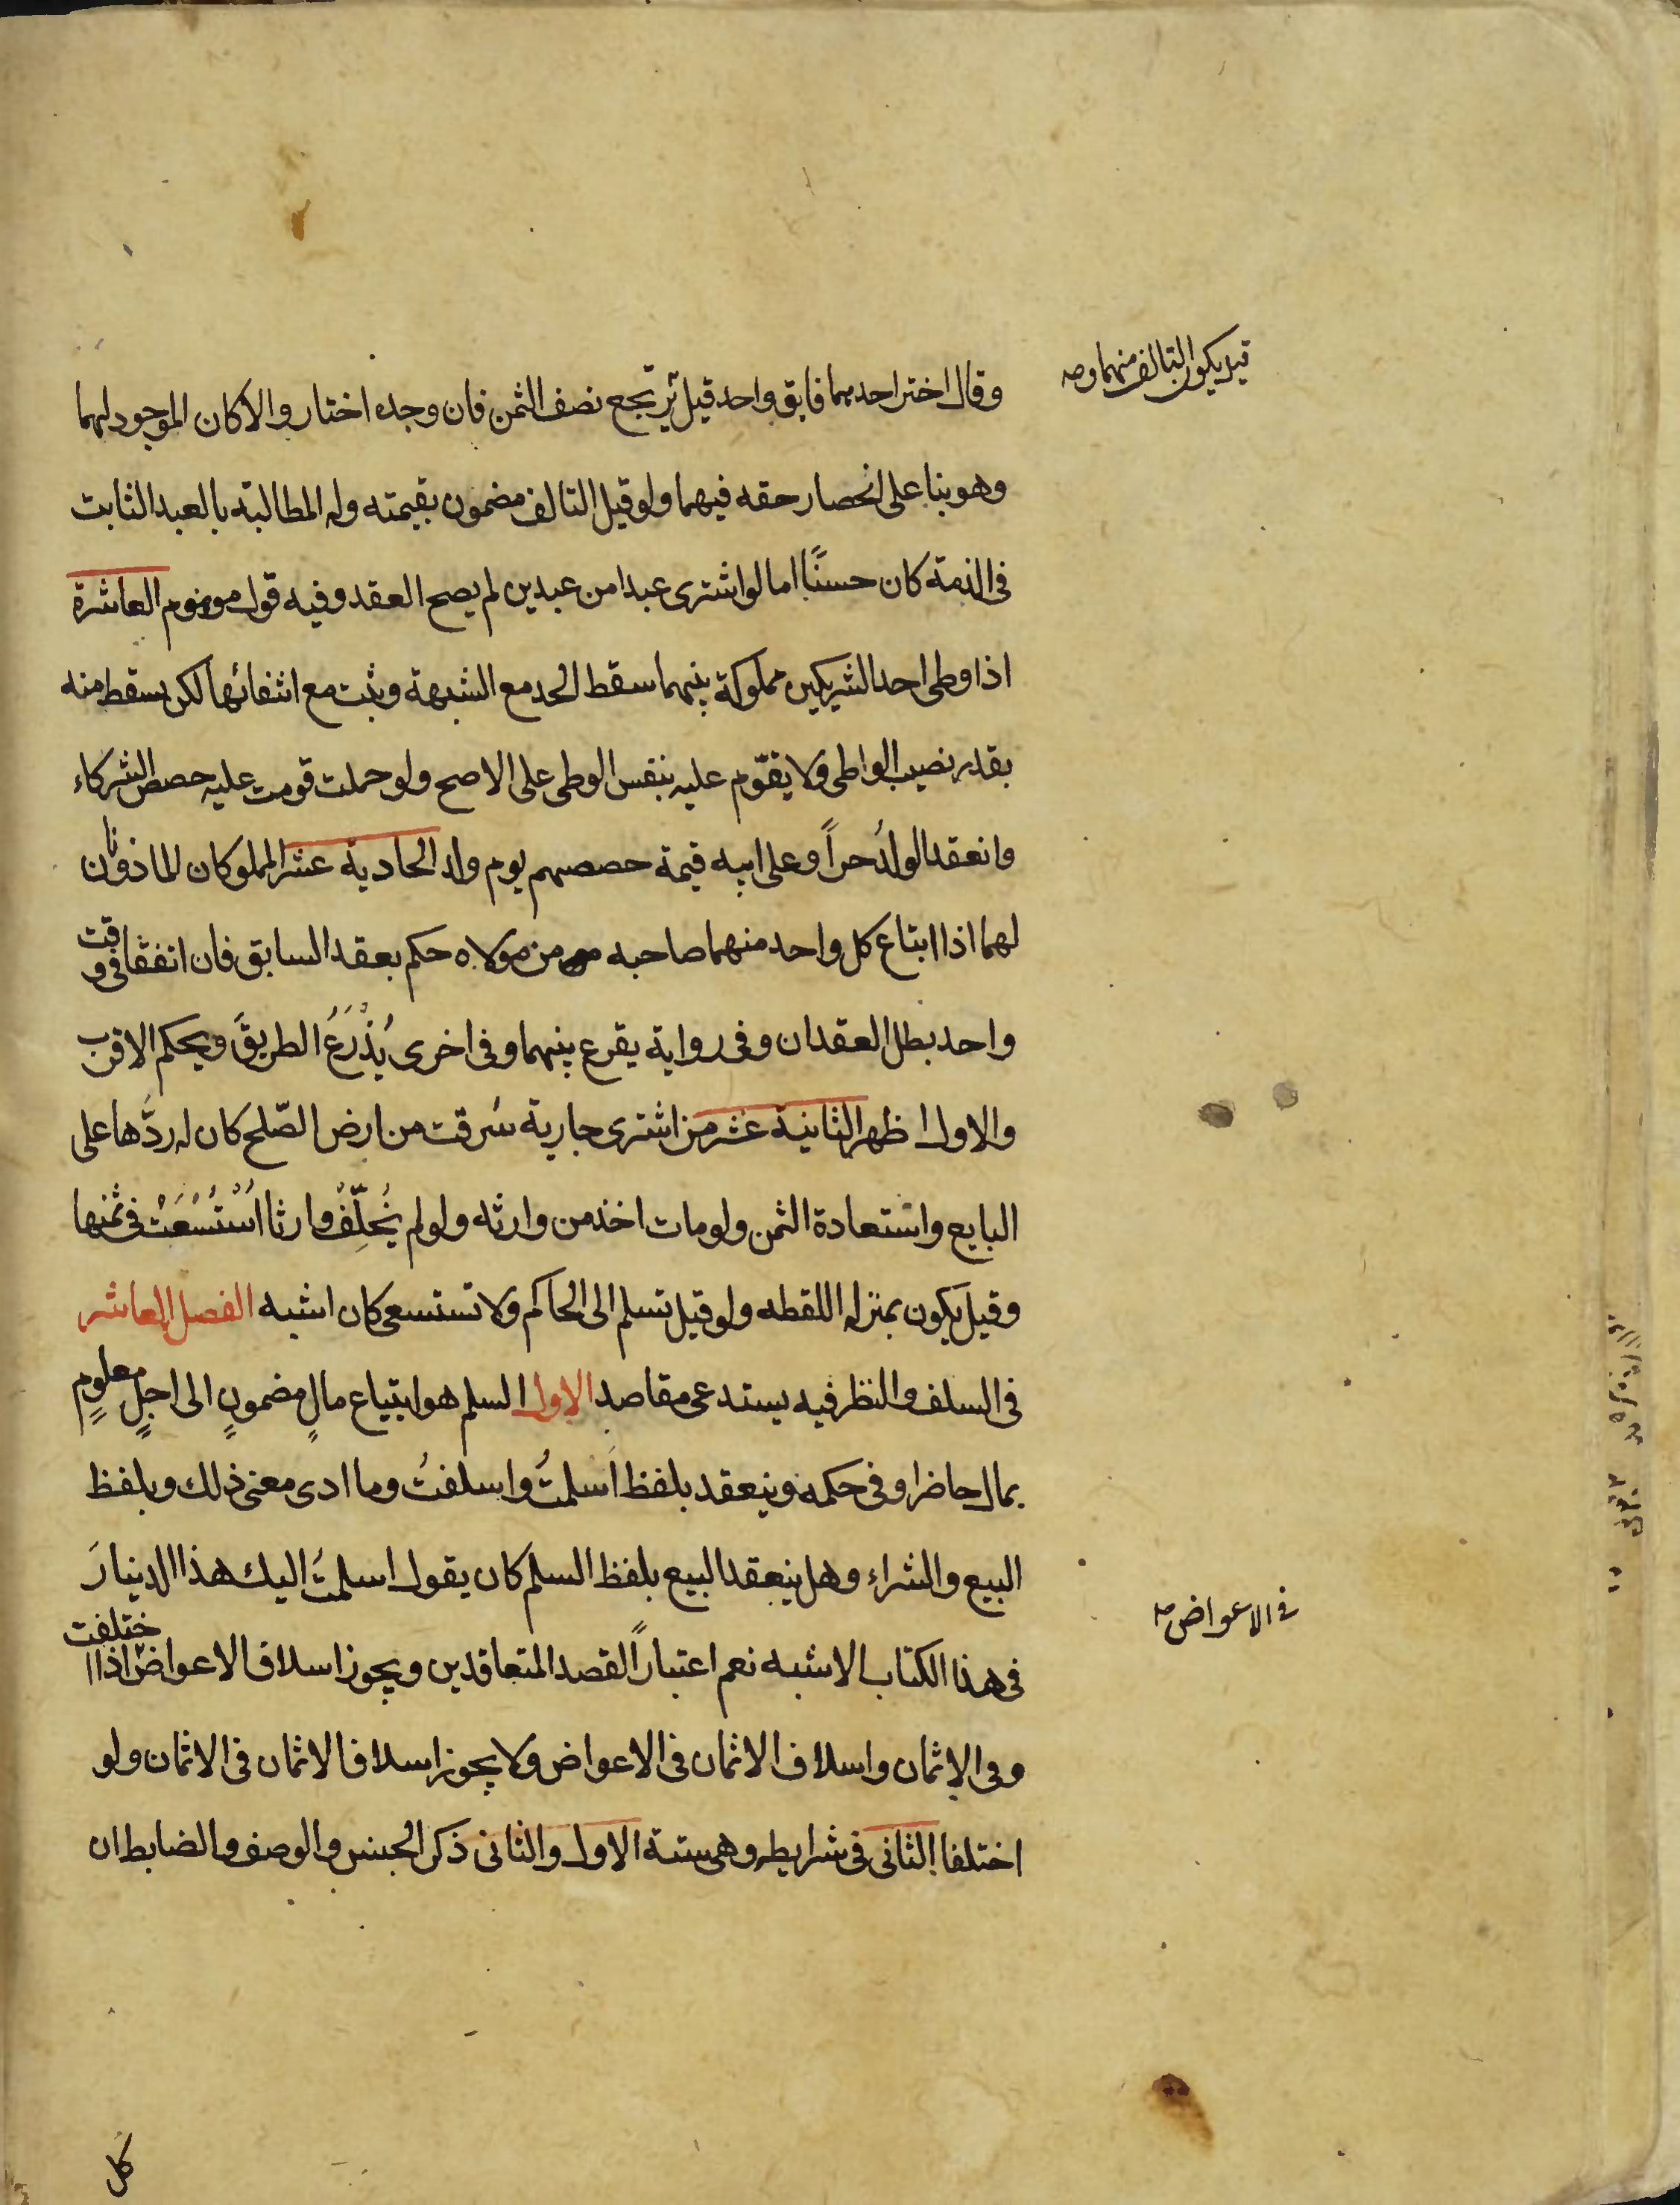 قيل يكون التالف منهما وصه
وقال اختر احدهما فابق واحد قيل يرتجع نصف الثمن فان وجده اختار والا كان الموجود لهما
وهو بنا على انحصار حقه فيهما ولو قيل التالف مضمون بقيمته وله المطالبة بالعبد الثابت
فى الذمة كان حسنًا اما لو اشترى عبدا من عبدين لم يصح العقد وفيه قول موهوم العاشرة
اذا وطى احد الشريكين مملوكة بينهما سقط الحد مع الشبهة ويثبت مع انتفائها لكن يسقط منه
بقدر نصيب الواطى ولا يقوّم عليه بنفس الوطى على الاصح ولو حملت قومت عليه حصص الشركاء
وانعقد الولدُ حراً وعلى ابيه قيمة حصصهم يوم ولد الحادية عشر المملوكان الماذونان
لهما اذا ابتاع كل واحد منهما صاحبه من مولاه حكم بعقد السابق فان اتفقا فى وقت
واحد بطل العقدان وفى رواية يقرع بينهما وفى اخرى يُذْرَعُ الطريقَ ويحكم الاقرب
والاول اظهر الثانية عشر من اشترى جارية سُرقت من ارض الصّلح كان له ردَّها على
البايع واستعادة الثمن ولو مات اخذ من وارثه ولو لم يُخلِّفْ وارثا اُسْتُسْعَتْ فى ثمنها
وقيل يكون بمنزله اللقطه ولو قيل تسلم الى الحاكم ولا تستسعى كان اشبه الفصل العاشر
فى السلف والنظر فيه يستدعى مقاصد الاول السلم هو ابتياع مالٍ مضمونٍ الى اجلٍ معلومٍ
بمال حاضر او فى حكمه وينعقد بلفظ اَسلمتُ واسلفتُ وما ادى معنى ذلك وبلفظ
البيع والشراء وهل ينعقد البيع بلفظ السلم كان يقول اسلمتُ اليك هذا الدينارَ
فى هذا الكتاب الاشبه نعم اعتباراً لقصد المتعاقدين ويجوز اسلاف الاعواض اذا اختلفت
فى الاعواض صه
وفى الاثمان واسلاف الاثمان فى الاعواض ولا يجوز اسلاف الاثمان فى الاثمان ولو
اختلفا الثانى فى شرايطه وهى ستة الاول والثانى ذكر الجنس والوصف والضابط ان
كل